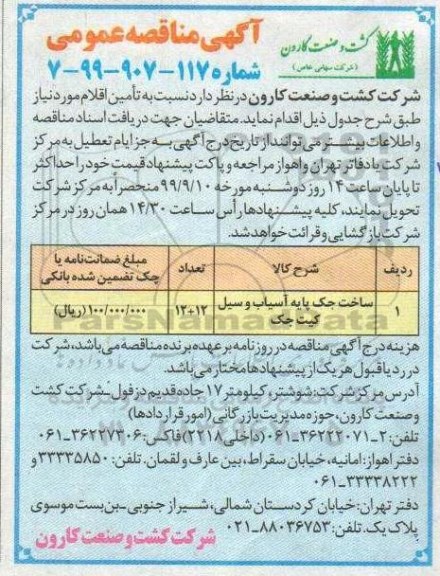 آگهی مناقصه عمومی
شماره ۱۱۷-۹۰۷-۹۹-۷
کشت و صنعت کارون
(شرکت سهامی خاص)
شرکت کشت و صنعت کارون در نظر دارد نسبت به تأمین اقلام مورد نیاز
طبق شرح جدول ذیل اقدام نماید. متقاضیان جهت دریافت اسناد مناقصه
و اطلاعات بیشتر می توانند از تاریخ درج آگهی به جز ایام تعطیل به مرکز
شرکت یا دفاتر تهران و اهواز مراجعه و پاکت پیشنهاد قیمت خود را حداکثر
تا پایان ساعت ۱۴ روز دوشنبه مورخه ۹۹/۹/۱۰ منحصراً به مرکز شرکت
تحویل نمایند، کلیه پیشنهادها رأس ساعت ۱۴/۳۰ همان روز در مرکز
شرکت بازگشایی و قرائت خواهد شد.
ردیف شرح کالا تعداد مبلغ ضمانت‌نامه یا چک تضمین شده بانکی
۱ ساخت جک پایه آسیاب و سیل کیت جک ۱۲+۱۲ ۱۰۰/۰۰۰/۰۰۰ (ریال)
هزینه درج آگهی مناقصه در روزنامه بر عهده برنده مناقصه می‌باشد، شرکت
در رد یا قبول هر یک از پیشنهادها مختار می‌باشد.
آدرس مرکز شرکت: شوشتر، کیلومتر ۱۷ جاده قدیم دزفول_شرکت کشت
و صنعت کارون، حوزه مدیریت بازرگانی (امور قراردادها)
تلفن: ۲_۳۶۲۲۲۰۷۱_۰۶۱ (داخلی ۲۲۱۸) فاکس: ۳۶۲۲۷۲۰۶_۰۶۱
دفتر اهواز: امانیه، خیابان سقراط، بین عارف و لقمان. تلفن: ۳۳۳۳۵۸۵۰ و
۳۳۳۳۸۲۲۲_۰۶۱
دفتر تهران: خیابان کردستان شمالی، شیراز جنوبی_بن بست موسوی
پلاک یک. تلفن: ۸۸۰۳۶۷۵۳_۰۲۱
شرکت کشت و صنعت کارون
ParsNamadData